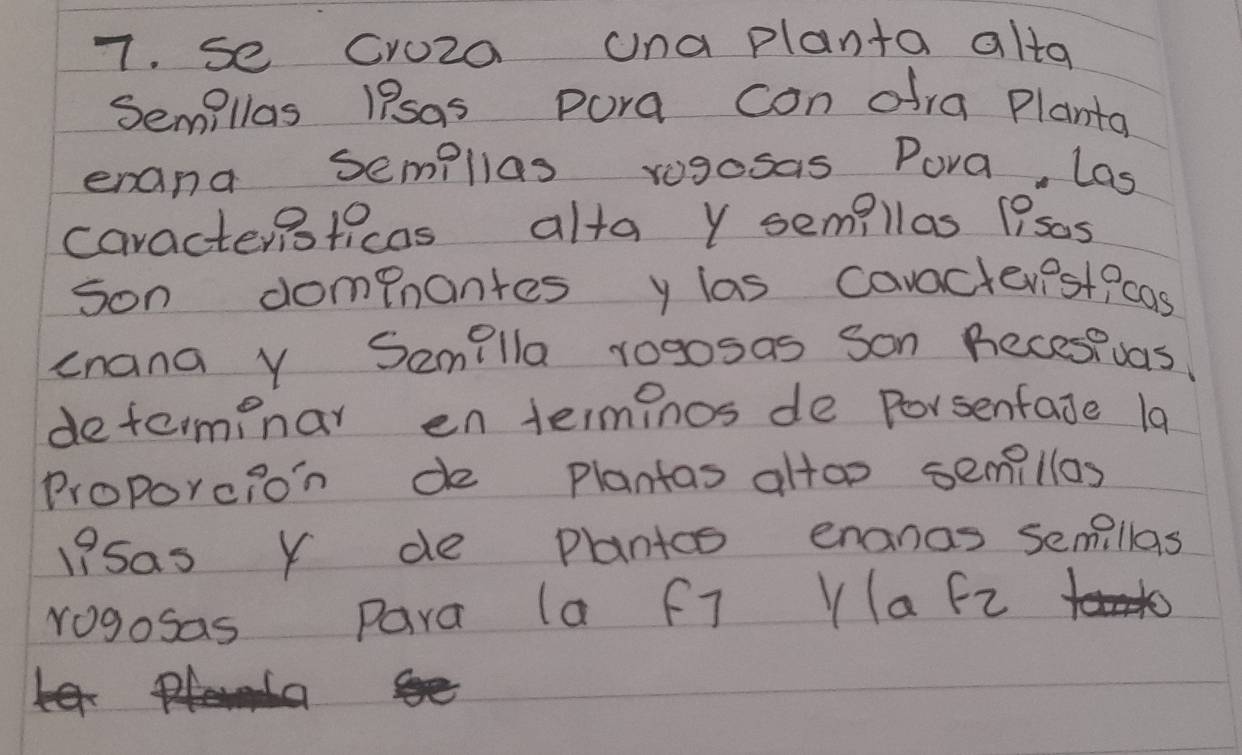 7. Se Cruza una planta alta
Semillas lisas pura con otra Planta
enana semillas rugosas Pura. Las
caracteristicas alta y semillas lisas
son dominantes y las caracteristicas
enana y Semilla rogosas son Recesivas,
determinar en terminos de Porsentaje la
Proporción de Plantas altas semillas
lisas y de Plantas enanas semillas
rogosas Para la F1 Y la F2